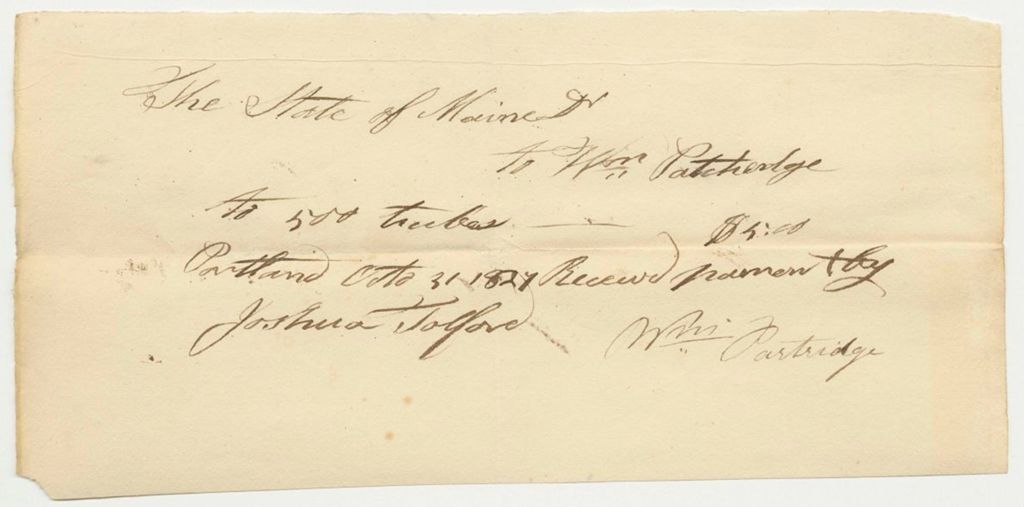 The State of Maine Dr
to Wm Patchedge
to 500 tubes — $5.00
Portland Octo 31 1827 Received pamen t by
Joshua Tolford
Wm Partridge